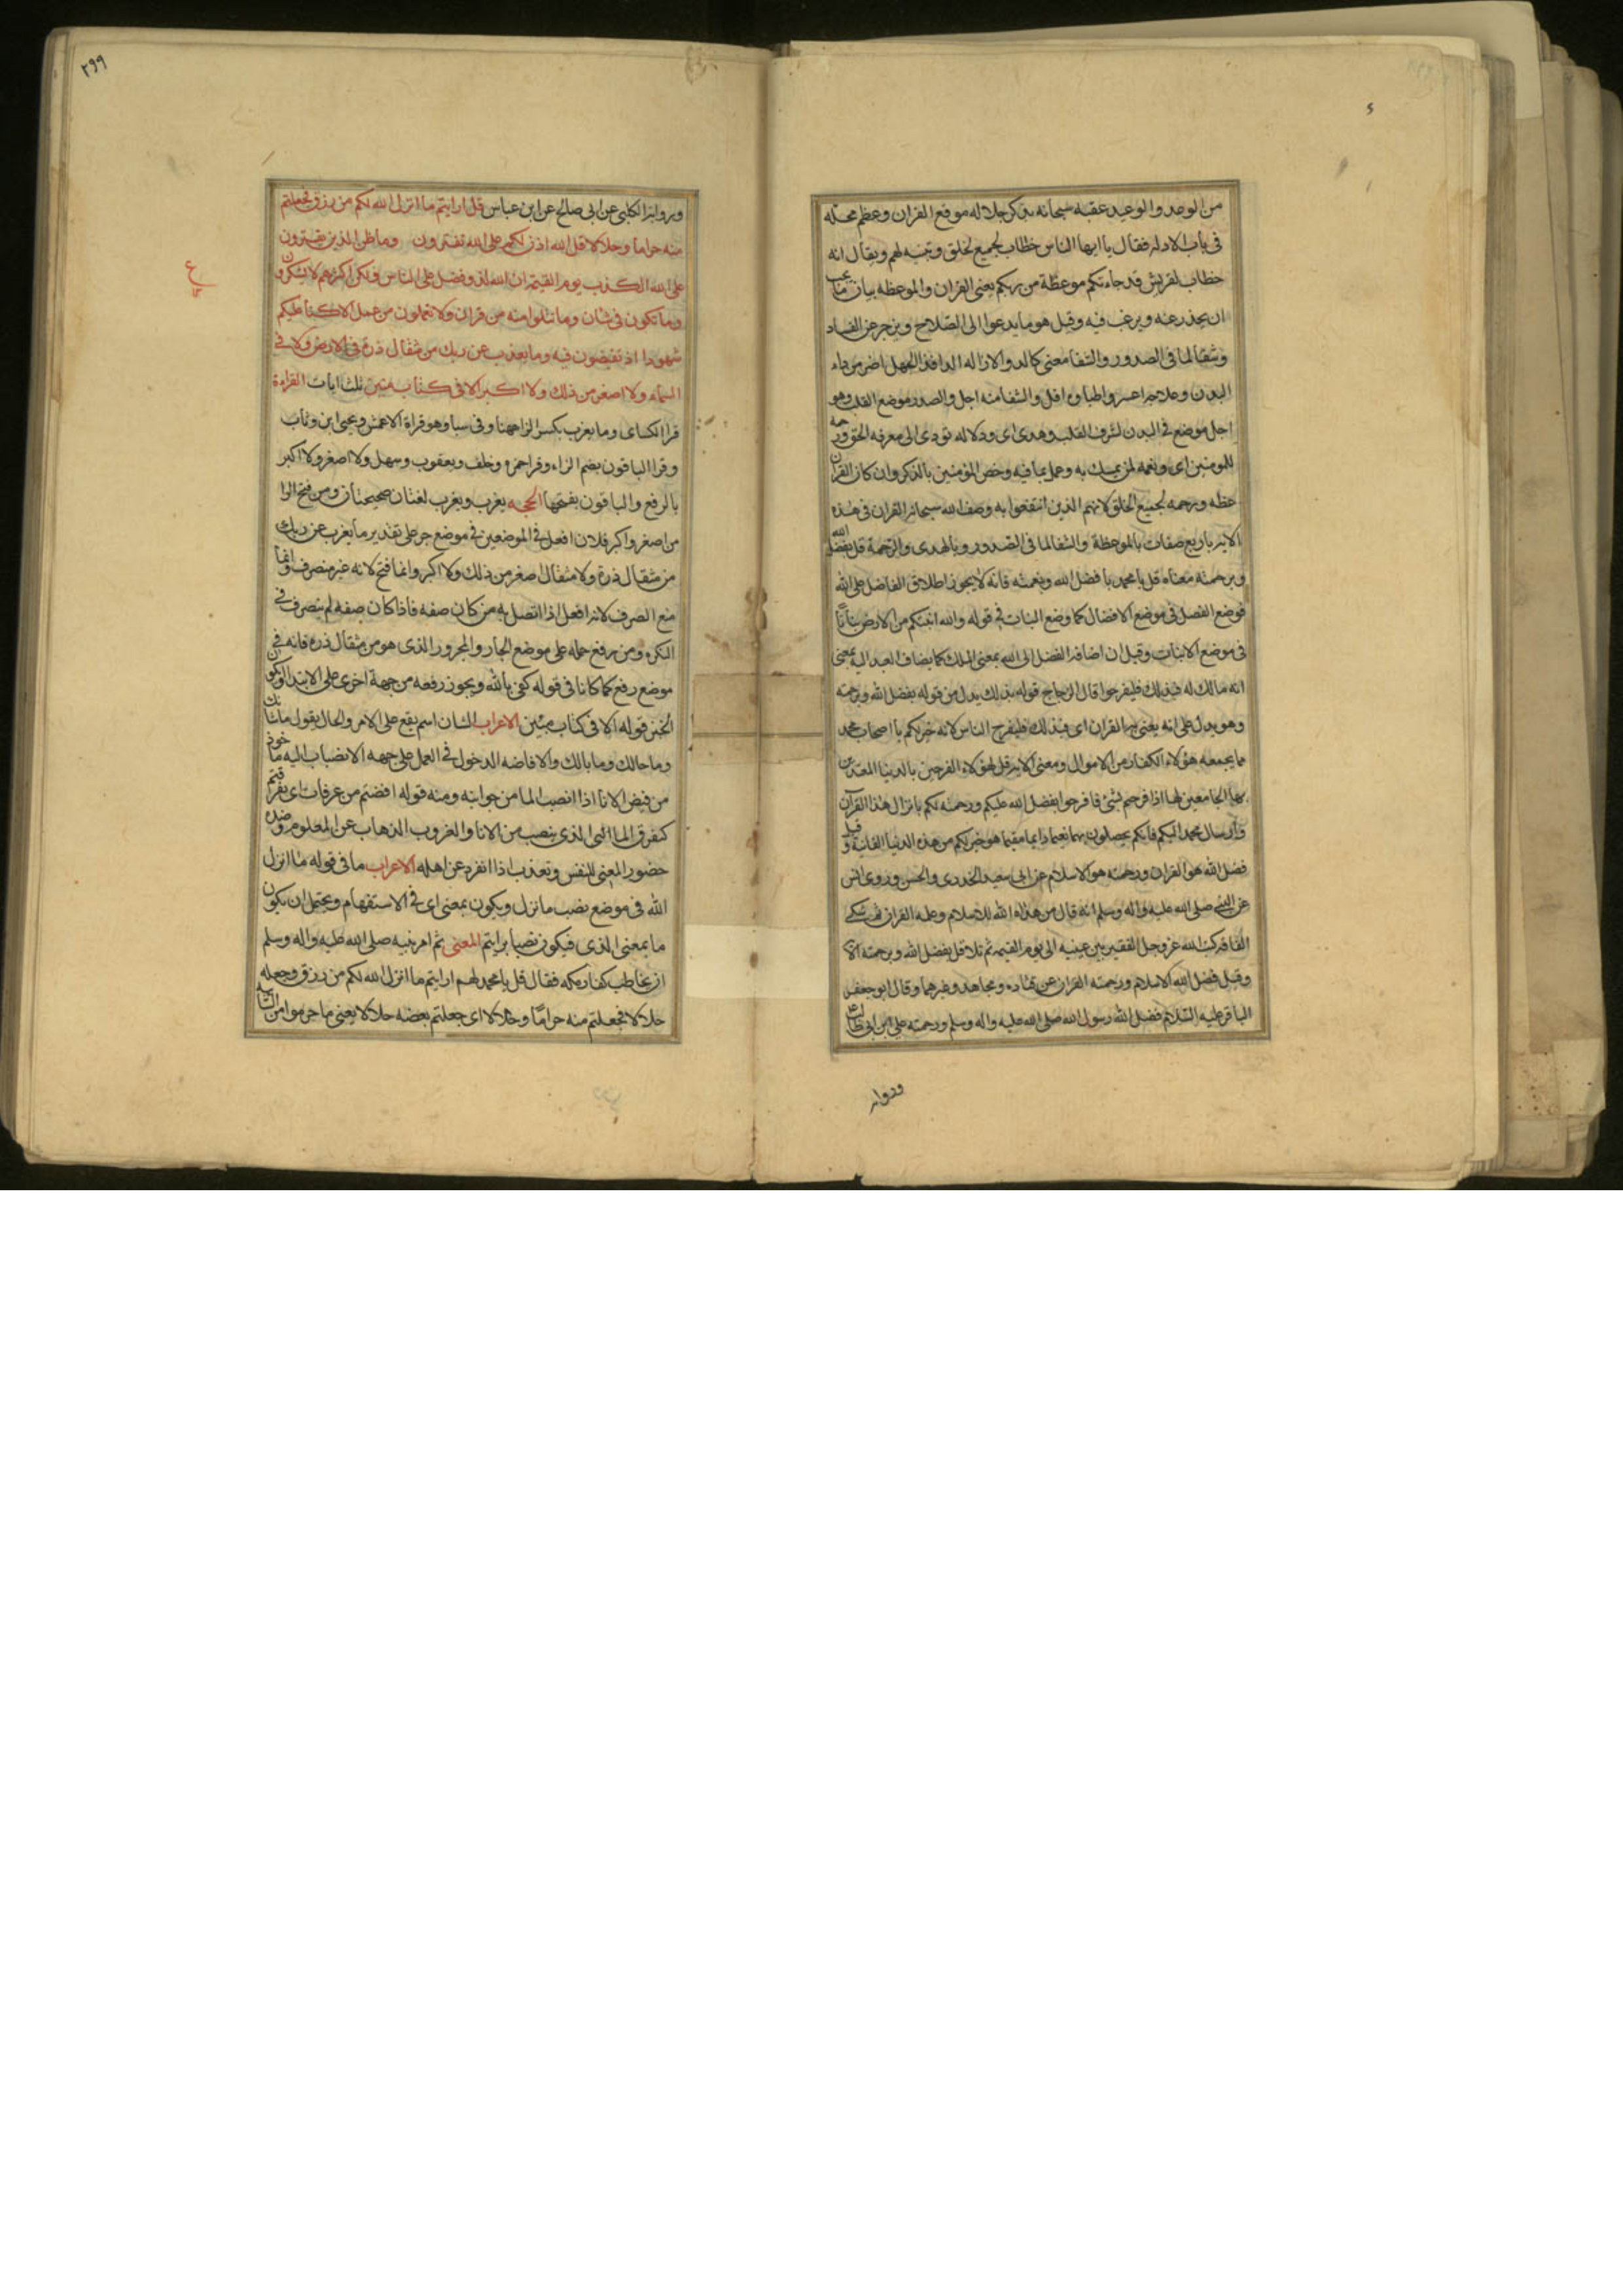 من الوعد والوعيد عقبه سبحانه بذكر جلاله موقع القران وعظم محله
فى باب الادله فقال يا ايها الناس خطاب لجميع الخلق وتنبيه لهم ويقال انه
خطاب لقريش قد جاءتكم موعظة من ربكم يعنى القران والموعظه بيان ما يجب
ان يحذر عنه ويرغب فيه وقيل هو ما يدعوا الى الصلاح ويزجر عن الفساد
وشفا لما فى الصدور والشفا معنى كالدوا لازاله الدا فدا الجهل اضر من داء
البدن وعلاجه اعسر واطباوه اقل والشفا منه اجل والصدر موضع القلب وهو
اجل موضع فى البدن لشرف القلب وهدى اى ودلاله تودى الى معرفه الحق ورحمه
للمومنين اى ونعمه لمن تمسك به وعمل بما فيه وخص المؤمنين بالذكر وان كان القران
عظه ورحمه لجميع الخلق لانهم الذين انتفعوا به وصف الله سبحانه القران فى هذه
الايه باربع صفات بالموعظة والشفا لما فى الصدور وبالهدى والرحمة قل بفضل الله
وبرحمته معناه قل يا محمد بافضل الله ونعمته فانه لا يجوز اطلاق الفاضل على الله
فوضع الفضل فى موضع الافضال كما وضع النبات فى قوله والله انبتكم من الارض نباتا
فى موضع الانبات وقيل ان اضافه الفضل الى الله بمعنى الملك كما يضاف العبد اليه بمعنى
انه مالك له فبذلك فليفرحوا قال الزجاج قوله بذلك بدل من قوله بفضل الله وبرحمته
وهو يدل على انه يعنى به القران اى فبذلك فليفرح الناس لانه خير لكم يا اصحاب محمد
مما يجمعه هؤلاء الكفار من الاموال ومعنى الايه قل لهؤلاء الفرحين بالدنيا المعتدين
بها الجامعين لها اذا فرحتم بشئ فافرحوا بفضل الله عليكم ورحمته لكم بانزال هذا القرآن
وارسال محمد اليكم فانكم يحصلون بهما نعيما دايما مقيما هو خير لكم من هذه الدنيا الفانية وقيل
فضل الله هو القران ورحمته هو الاسلام عن ابى سعيد الخدرى والحسن وروى انس
عن النبى صلى الله عليه واله وسلم انه قال من هداه الله للاسلام وعلمه القران ثم شكى
الفاقه كتب الله عز وجل الفقر بين عينيه الى يوم القيمه ثم تلا قل بفضل الله وبرحمته الايه
وقيل فضل الله الاسلام ورحمته القران عن قتاده ومجاهد وغيرهما وقال ابو جعفر
الباقر عليه السلام فضل الله رسول الله صلى الله عليه واله وسلم ورحمته على ابن ابى طالب
ورواه
٢٩٩
ورواه الكلبى عن ابى صالح عن ابن عباس قل ارايتم ما انزل الله لكم من رزق فجعلتم
منه حراما وحلالا قل الله اذن لكم ام على الله تفترون وما ظن الذين يفترون
على الله الكذب يوم القيمة ان الله لذو فضل على الناس ولكن اكثرهم لا يشكرون
وما تكون فى شان وما تتلوا منه من قران ولا تعملون من عمل الا كنا عليكم
شهودا اذ تفيضون فيه وما يعذب عن ربك من مثقال ذرة فى الارض ولا فى
السماء ولا اصغر من ذلك ولا اكبر الا فى كتاب مبين ثلث ايات القراءة
قرا الكساى وما يعزب بكسر الزا ههنا وفى سبا وهو قراة الاعمش ويحيى ابن وثاب
وقرا الباقون بضم الزاء وقرا حمزه وخلف ويعقوب وسهل ولا اصغر ولا اكبر
بالرفع والباقون بفتحها الحجه يعزب ويعزب لغتان صحيحتان ومن فتح الرا
من اصغر واكبر فلان افعل فى الموضعين فى موضع جر على تقدير ما يعزب عن ربك
من مثقال ذرة ولا مثقال اصغر من ذلك ولا اكبر وانما فتح لانه غير منصرف وانما
منع الصرف لانه افعل اذا اتصل به من كان صفه فاذا كان صفه لم ينصرف فى
النكره ومن رفع حمله على موضع الجار والمجرور الذى هو من مثقال ذره فانه فى
موضع رفع كما كانا فى قوله كفى بالله ويجوز رفعه من جهة اخرى على الابتدا ويكون
الخبر قوله الا فى كتاب مبين الاعراب الشان اسم يقع على الامر والحال يقول ما شانك
وما حالك وما بالك والافاضه الدخول فى العمل على جهه الانصباب اليه ماخوذ
من فيض الانا اذا انصب الما من جوانبه ومنه قوله افضتم من عرفات اى تفرقتم
كتفرق الما الذى ينصب من الانا والعزوب الذهاب عن المعلوم وضده
حضور المعنى للنفس وتعذب اذا انفرد عن اهله الاعراب ما فى قوله ما انزل
الله فى موضع نصب ما نزل ويكون بمعنى اى فى الاستفهام ويحتمل ان يكون
ما بمعنى الذى فيكون نصبا برايتم المعنى ثم امر نبيه صلى الله عليه واله وسلم
ان يخاطب كفار مكه فقال قل يا محمد لهم ارايتم ما انزل الله لكم من رزق وجعله
حلالا فجعلتم منه حراما وحلالا اى جعلتم بعضه حلالا يعنى ما حرموا من السائبه